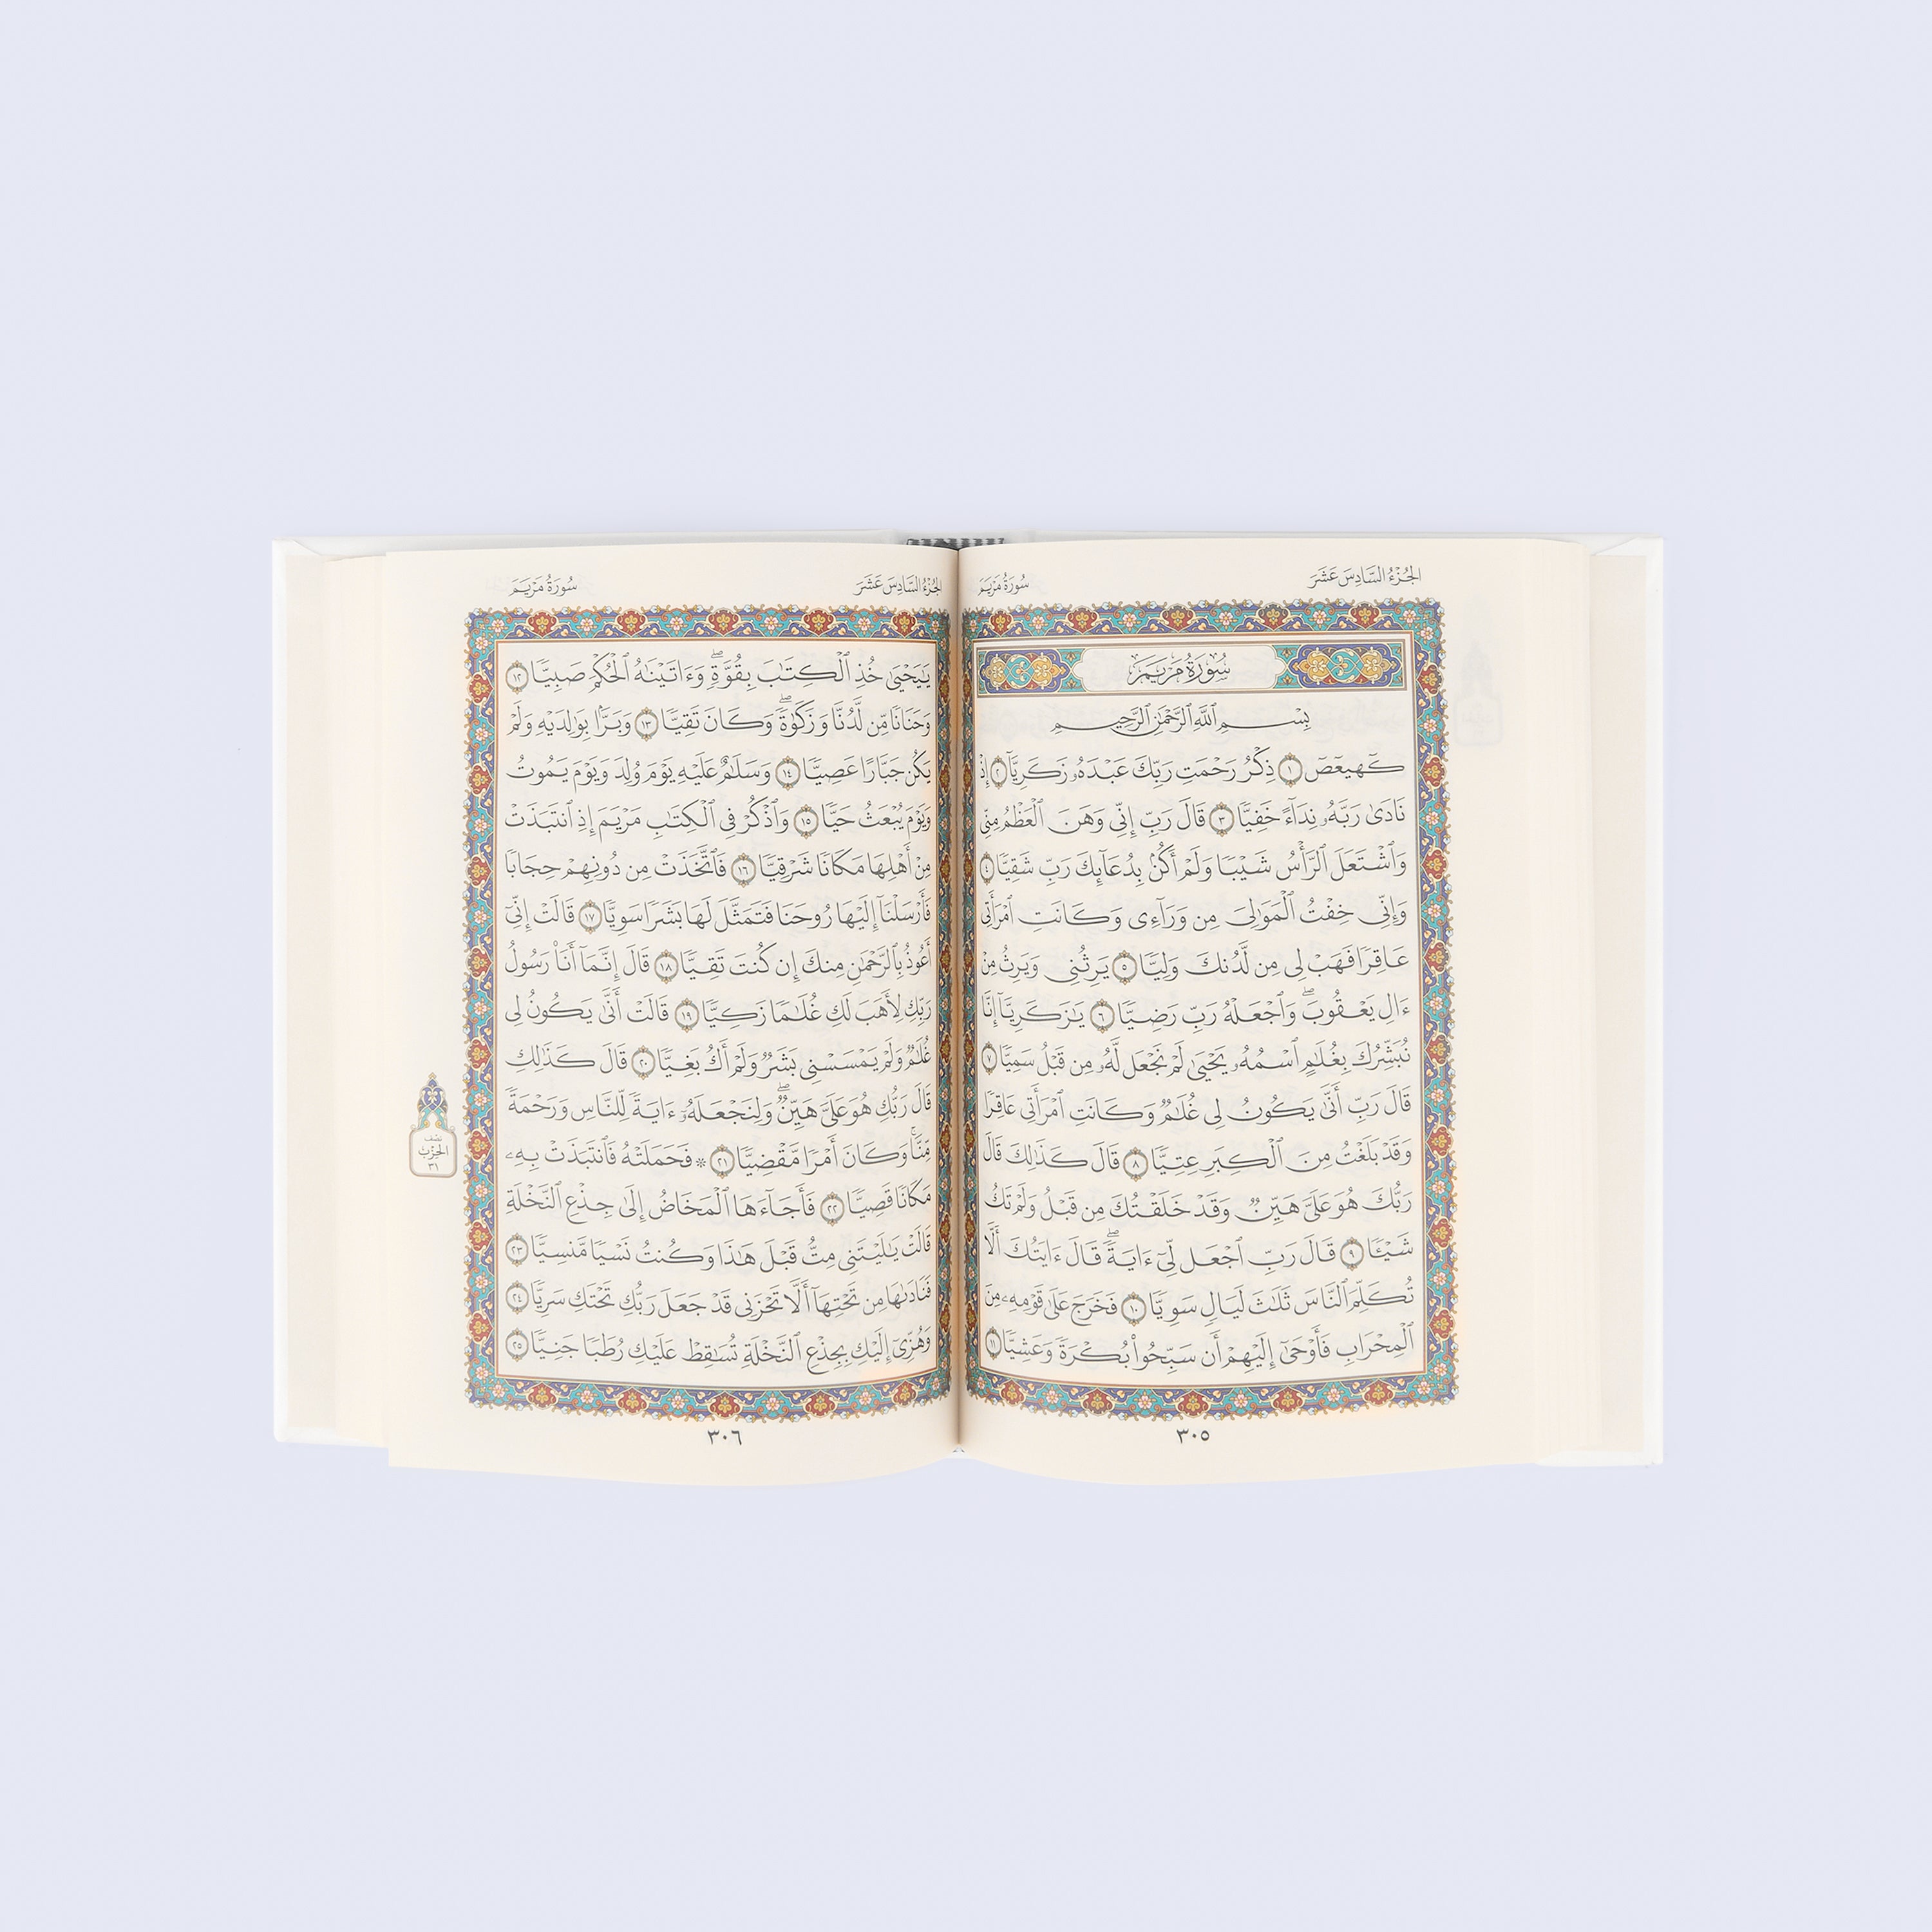 الجُزْءُ السَّادِسَ عَشَرَ
سُورَةُ مَرْيَمَ
سُورَةُ مَرْيَمَ
بِسْمِ ٱللَّهِ ٱلرَّحْمَٰنِ ٱلرَّحِيمِ
كٓهيعٓصٓ ١ ذِكْرُ رَحْمَتِ رَبِّكَ عَبْدَهُۥ زَكَرِيَّآ ٢ إِذْ
نَادَىٰ رَبَّهُۥ نِدَآءً خَفِيًّا ٣ قَالَ رَبِّ إِنِّى وَهَنَ ٱلْعَظْمُ مِنِّى
وَٱشْتَعَلَ ٱلرَّأْسُ شَيْبًا وَلَمْ أَكُنۢ بِدُعَآئِكَ رَبِّ شَقِيًّا ٤
وَإِنِّى خِفْتُ ٱلْمَوَٰلِىَ مِن وَرَآءِى وَكَانَتِ ٱمْرَأَتِى
عَاقِرًا فَهَبْ لِى مِن لَّدُنكَ وَلِيًّا ٥ يَرِثُنِى وَيَرِثُ مِنْ
ءَالِ يَعْقُوبَۖ وَٱجْعَلْهُ رَبِّ رَضِيًّا ٦ يَٰزَكَرِيَّآ إِنَّا
نُبَشِّرُكَ بِغُلَٰمٍ ٱسْمُهُۥ يَحْيَىٰ لَمْ نَجْعَل لَّهُۥ مِن قَبْلُ سَمِيًّا ٧
قَالَ رَبِّ أَنَّىٰ يَكُونُ لِى غُلَٰمٌ وَكَانَتِ ٱمْرَأَتِى عَاقِرًا
وَقَدْ بَلَغْتُ مِنَ ٱلْكِبَرِ عِتِيًّا ٨ قَالَ كَذَٰلِكَ قَالَ
رَبُّكَ هُوَ عَلَىَّ هَيِّنٌ وَقَدْ خَلَقْتُكَ مِن قَبْلُ وَلَمْ تَكُ
شَيْـًٔا ٩ قَالَ رَبِّ ٱجْعَل لِّىٓ ءَايَةًۖ قَالَ ءَايَتُكَ أَلَّا
تُكَلِّمَ ٱلنَّاسَ ثَلَٰثَ لَيَالٍ سَوِيًّا ١٠ فَخَرَجَ عَلَىٰ قَوْمِهِۦ مِنَ
ٱلْمِحْرَابِ فَأَوْحَىٰٓ إِلَيْهِمْ أَن سَبِّحُوا۟ بُكْرَةً وَعَشِيًّا ١١
٣٠٥
الجُزْءُ السَّادِسَ عَشَرَ
سُورَةُ مَرْيَمَ
يَٰيَحْيَىٰ خُذِ ٱلْكِتَٰبَ بِقُوَّةٍۖ وَءَاتَيْنَٰهُ ٱلْحُكْمَ صَبِيًّا ١٢
وَحَنَانًا مِّن لَّدُنَّا وَزَكَوٰةًۖ وَكَانَ تَقِيًّا ١٣ وَبَرًّۢا بِوَٰلِدَيْهِ وَلَمْ
يَكُن جَبَّارًا عَصِيًّا ١٤ وَسَلَٰمٌ عَلَيْهِ يَوْمَ وُلِدَ وَيَوْمَ يَمُوتُ
وَيَوْمَ يُبْعَثُ حَيًّا ١٥ وَٱذْكُرْ فِى ٱلْكِتَٰبِ مَرْيَمَ إِذِ ٱنتَبَذَتْ
مِنْ أَهْلِهَا مَكَانًا شَرْقِيًّا ١٦ فَٱتَّخَذَتْ مِن دُونِهِمْ حِجَابًا
فَأَرْسَلْنَآ إِلَيْهَا رُوحَنَا فَتَمَثَّلَ لَهَا بَشَرًا سَوِيًّا ١٧ قَالَتْ إِنِّىٓ
أَعُوذُ بِٱلرَّحْمَٰنِ مِنكَ إِن كُنتَ تَقِيًّا ١٨ قَالَ إِنَّمَآ أَنَا۠ رَسُولُ
رَبِّكِ لِأَهَبَ لَكِ غُلَٰمًا زَكِيًّا ١٩ قَالَتْ أَنَّىٰ يَكُونُ لِى
غُلَٰمٌ وَلَمْ يَمْسَسْنِى بَشَرٌ وَلَمْ أَكُ بَغِيًّا ٢٠ قَالَ كَذَٰلِكِ
قَالَ رَبُّكِ هُوَ عَلَىَّ هَيِّنٌۖ وَلِنَجْعَلَهُۥٓ ءَايَةً لِّلنَّاسِ وَرَحْمَةً
مِّنَّاۚ وَكَانَ أَمْرًا مَّقْضِيًّا ٢١ ۞ فَحَمَلَتْهُ فَٱنتَبَذَتْ بِهِۦ
مَكَانًا قَصِيًّا ٢٢ فَأَجَآءَهَا ٱلْمَخَاضُ إِلَىٰ جِذْعِ ٱلنَّخْلَةِ
قَالَتْ يَٰلَيْتَنِى مِتُّ قَبْلَ هَٰذَا وَكُنتُ نَسْيًا مَّنسِيًّا ٢٣
فَنَادَىٰهَا مِن تَحْتِهَآ أَلَّا تَحْزَنِى قَدْ جَعَلَ رَبُّكِ تَحْتَكِ سَرِيًّا ٢٤
وَهُزِّىٓ إِلَيْكِ بِجِذْعِ ٱلنَّخْلَةِ تُسَٰقِطْ عَلَيْكِ رُطَبًا جَنِيًّا ٢٥
نصف
الحزب
٣١
٣٠٦